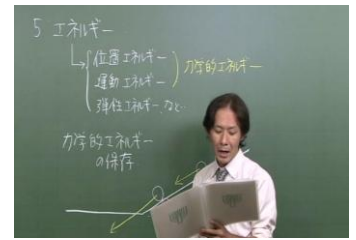 5 エネルギー
位置エネルギー
運動エネルギー
弾性エネルギー、など…
力学的エネルギー
力学的エネルギー
の保存